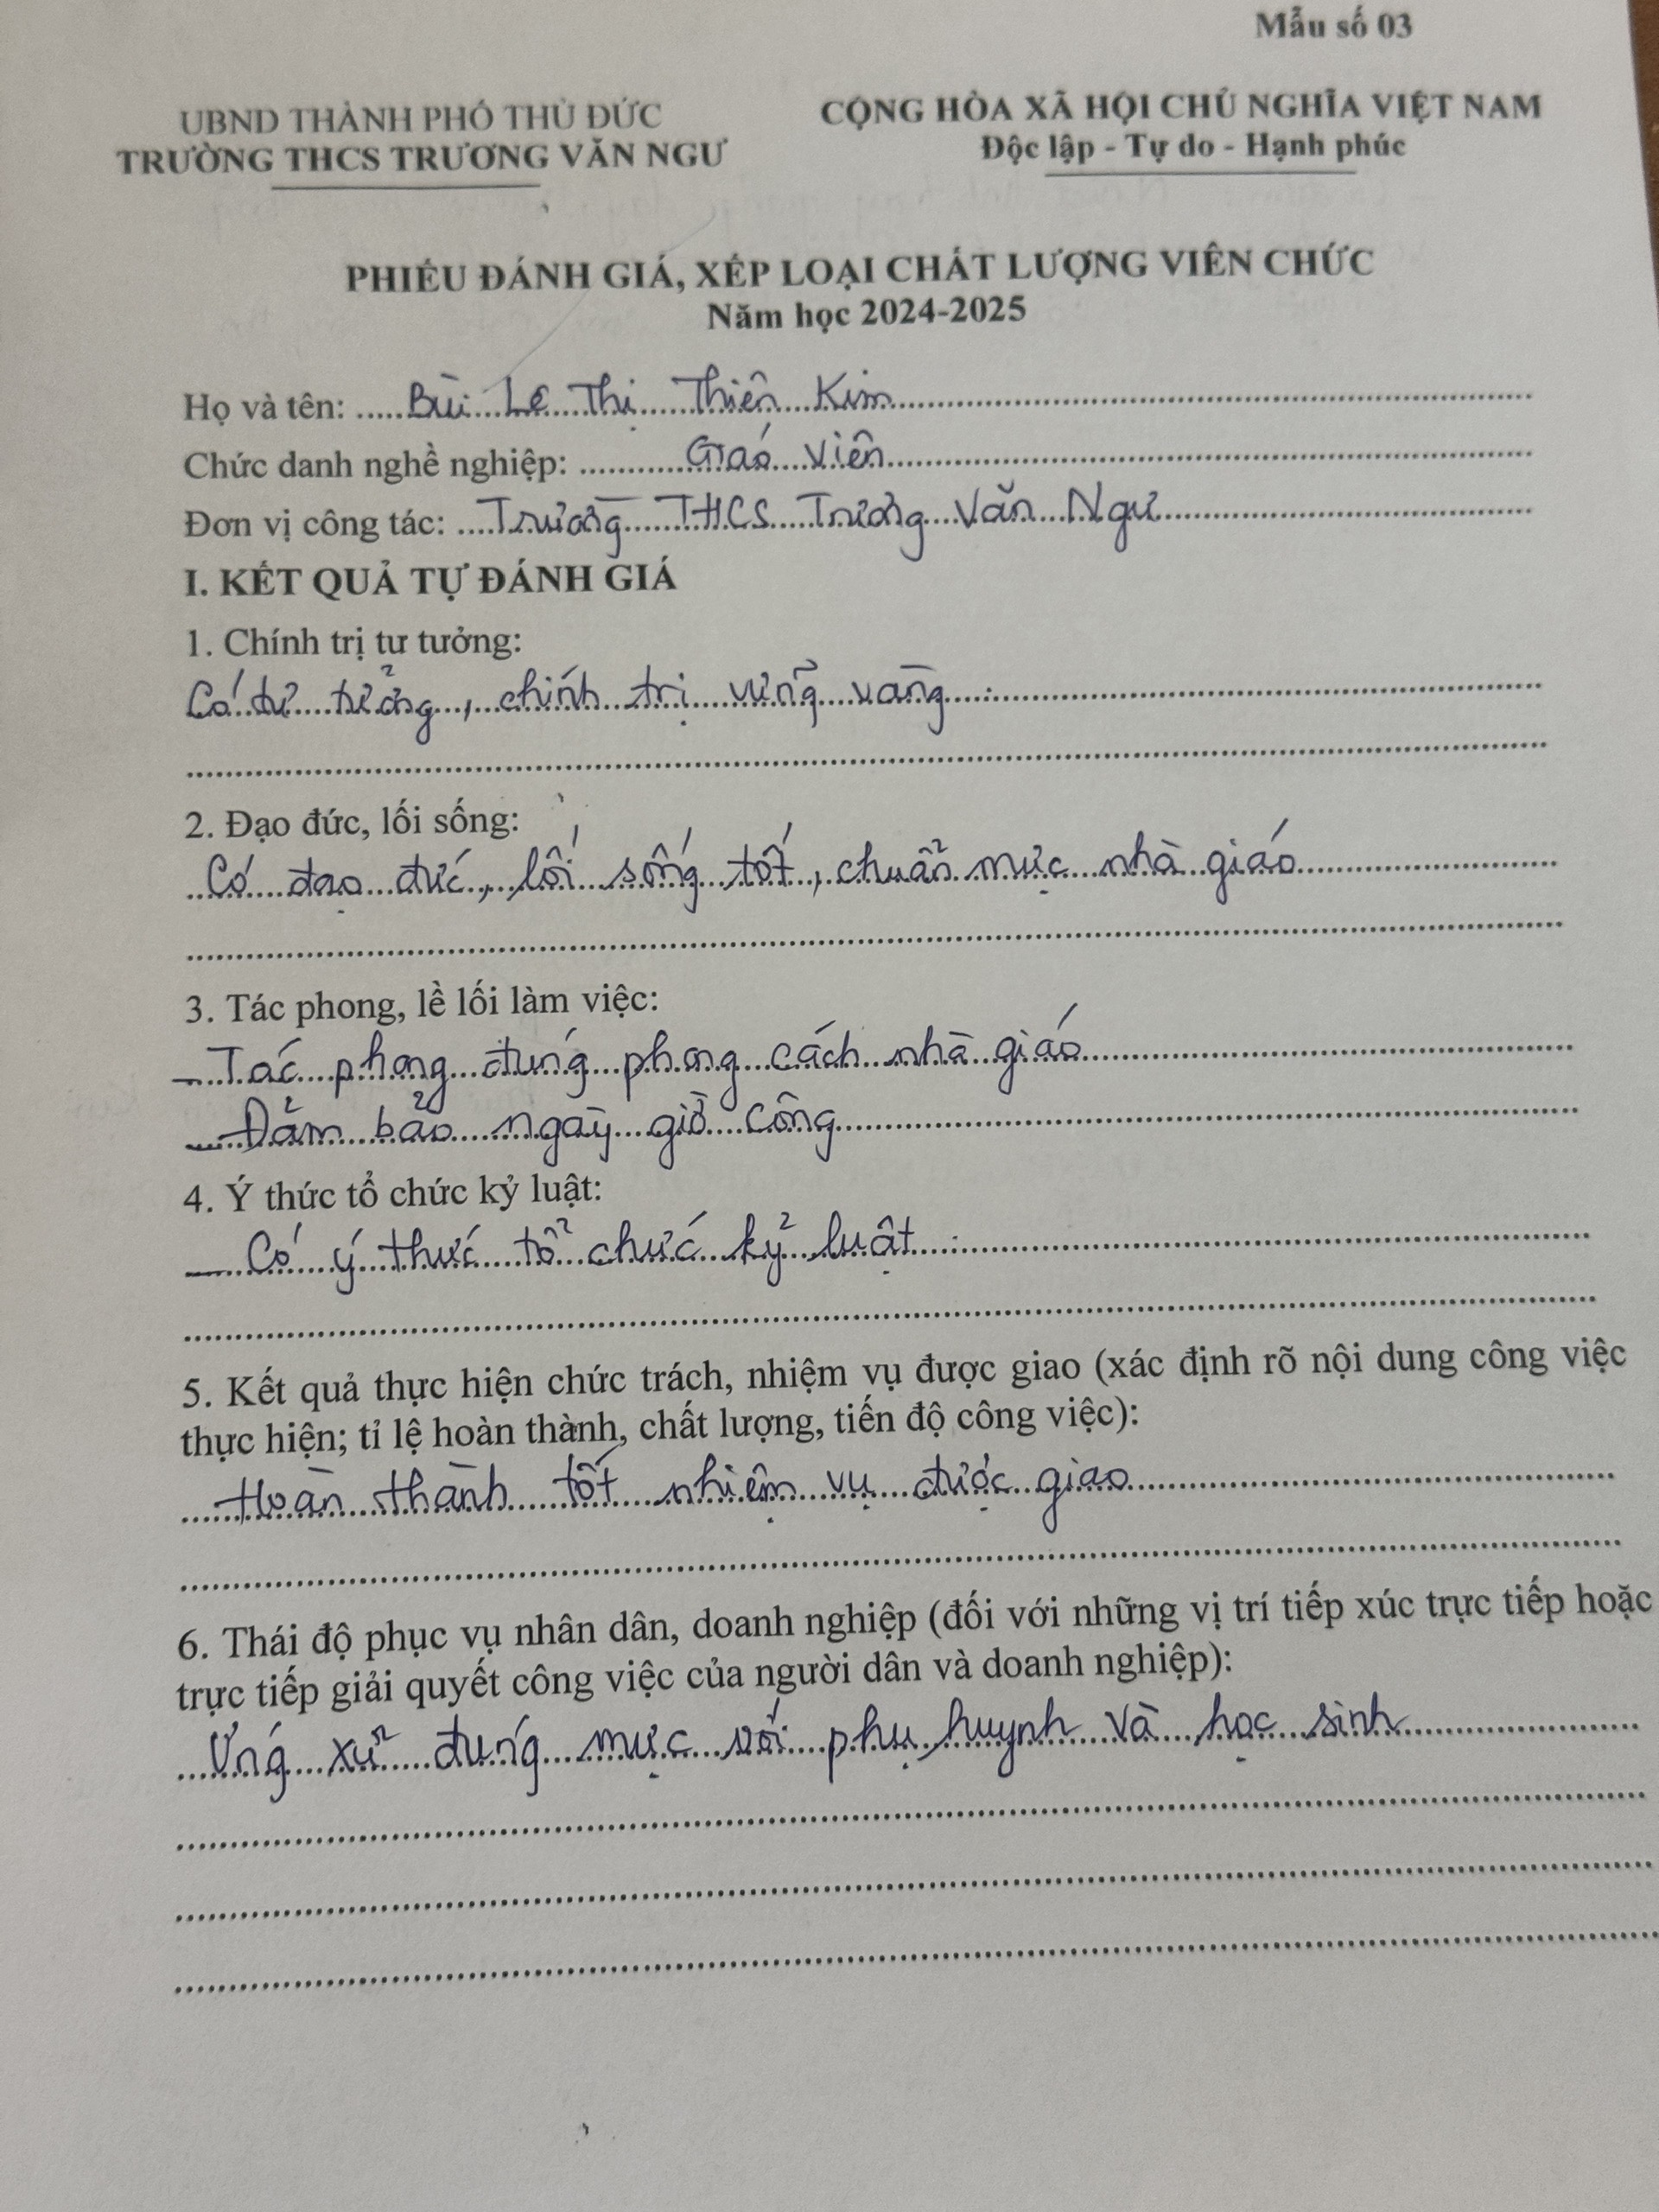 Mẫu số 03
UBND THÀNH PHỐ THỦ ĐỨC
TRƯỜNG THCS TRƯƠNG VĂN NGƯ
CỘNG HÒA XÃ HỘI CHỦ NGHĨA VIỆT NAM
Độc lập - Tự do - Hạnh phúc
PHIẾU ĐÁNH GIÁ, XẾP LOẠI CHẤT LƯỢNG VIÊN CHỨC
Năm học 2024-2025
Họ và tên: Bùi Lê Thị Thiên Kim
Chức danh nghề nghiệp: Giáo viên
Đơn vị công tác: Trường THCS Trương Văn Ngư
I. KẾT QUẢ TỰ ĐÁNH GIÁ
1. Chính trị tư tưởng:
Có tư tưởng, chính trị vững vàng.
2. Đạo đức, lối sống:
Có đạo đức, lối sống tốt, chuẩn mực nhà giáo
3. Tác phong, lề lối làm việc:
- Tác phong đúng phong cách nhà giáo
- Đảm bảo ngày giờ công
4. Ý thức tổ chức kỷ luật:
- Có ý thức tổ chức kỷ luật.
5. Kết quả thực hiện chức trách, nhiệm vụ được giao (xác định rõ nội dung công việc
thực hiện; tỉ lệ hoàn thành, chất lượng, tiến độ công việc):
Hoàn thành tốt nhiệm vụ được giao
6. Thái độ phục vụ nhân dân, doanh nghiệp (đối với những vị trí tiếp xúc trực tiếp hoặc
trực tiếp giải quyết công việc của người dân và doanh nghiệp):
Ứng xử đúng mực với phụ huynh và học sinh